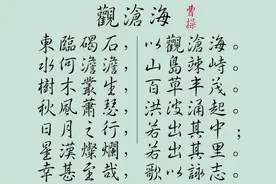 觀滄海 曹操
東臨碣石，以觀滄海。
水何澹澹，山島竦峙。
樹木叢生，百草丰茂。
秋風蕭瑟，洪波涌起。
日月之行，若出其中；
星漢燦爛，若出其里。
幸甚至哉，歌以詠志。